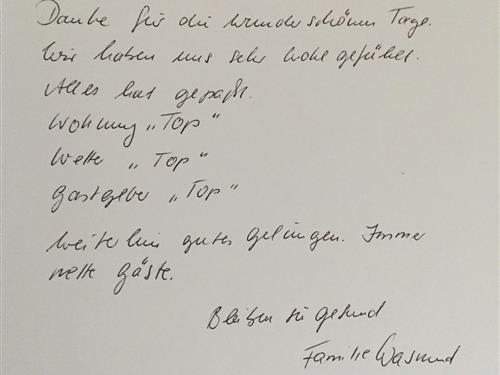 Danke für die wunderschönen Tage.
Wir haben uns sehr wohl gefühlt.
Alles hat gepaßt.
Wohnung „Top"
Wetter „Top"
Gastgeber „Top"
Weiterhin gutes Gelingen. Immer
nette Gäste.
Bleiben sie gesund
Familie Wasmund